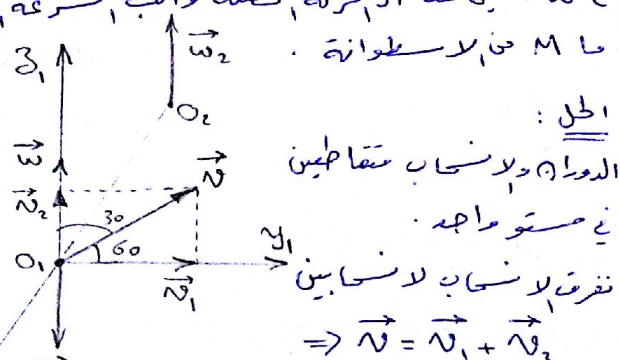 ما M من الاسطوانة .
الحل :
الدوران والانسحاب متقاطعين
في مستو واحد .
نفرق الانسحاب لانسحابين
⇒ v⃗ = v⃗₁ + v⃗₂
z₁
ω⃗₂
O₂
ω⃗
v⃗₂
v⃗
30
60
O₁
y₁
v⃗₁